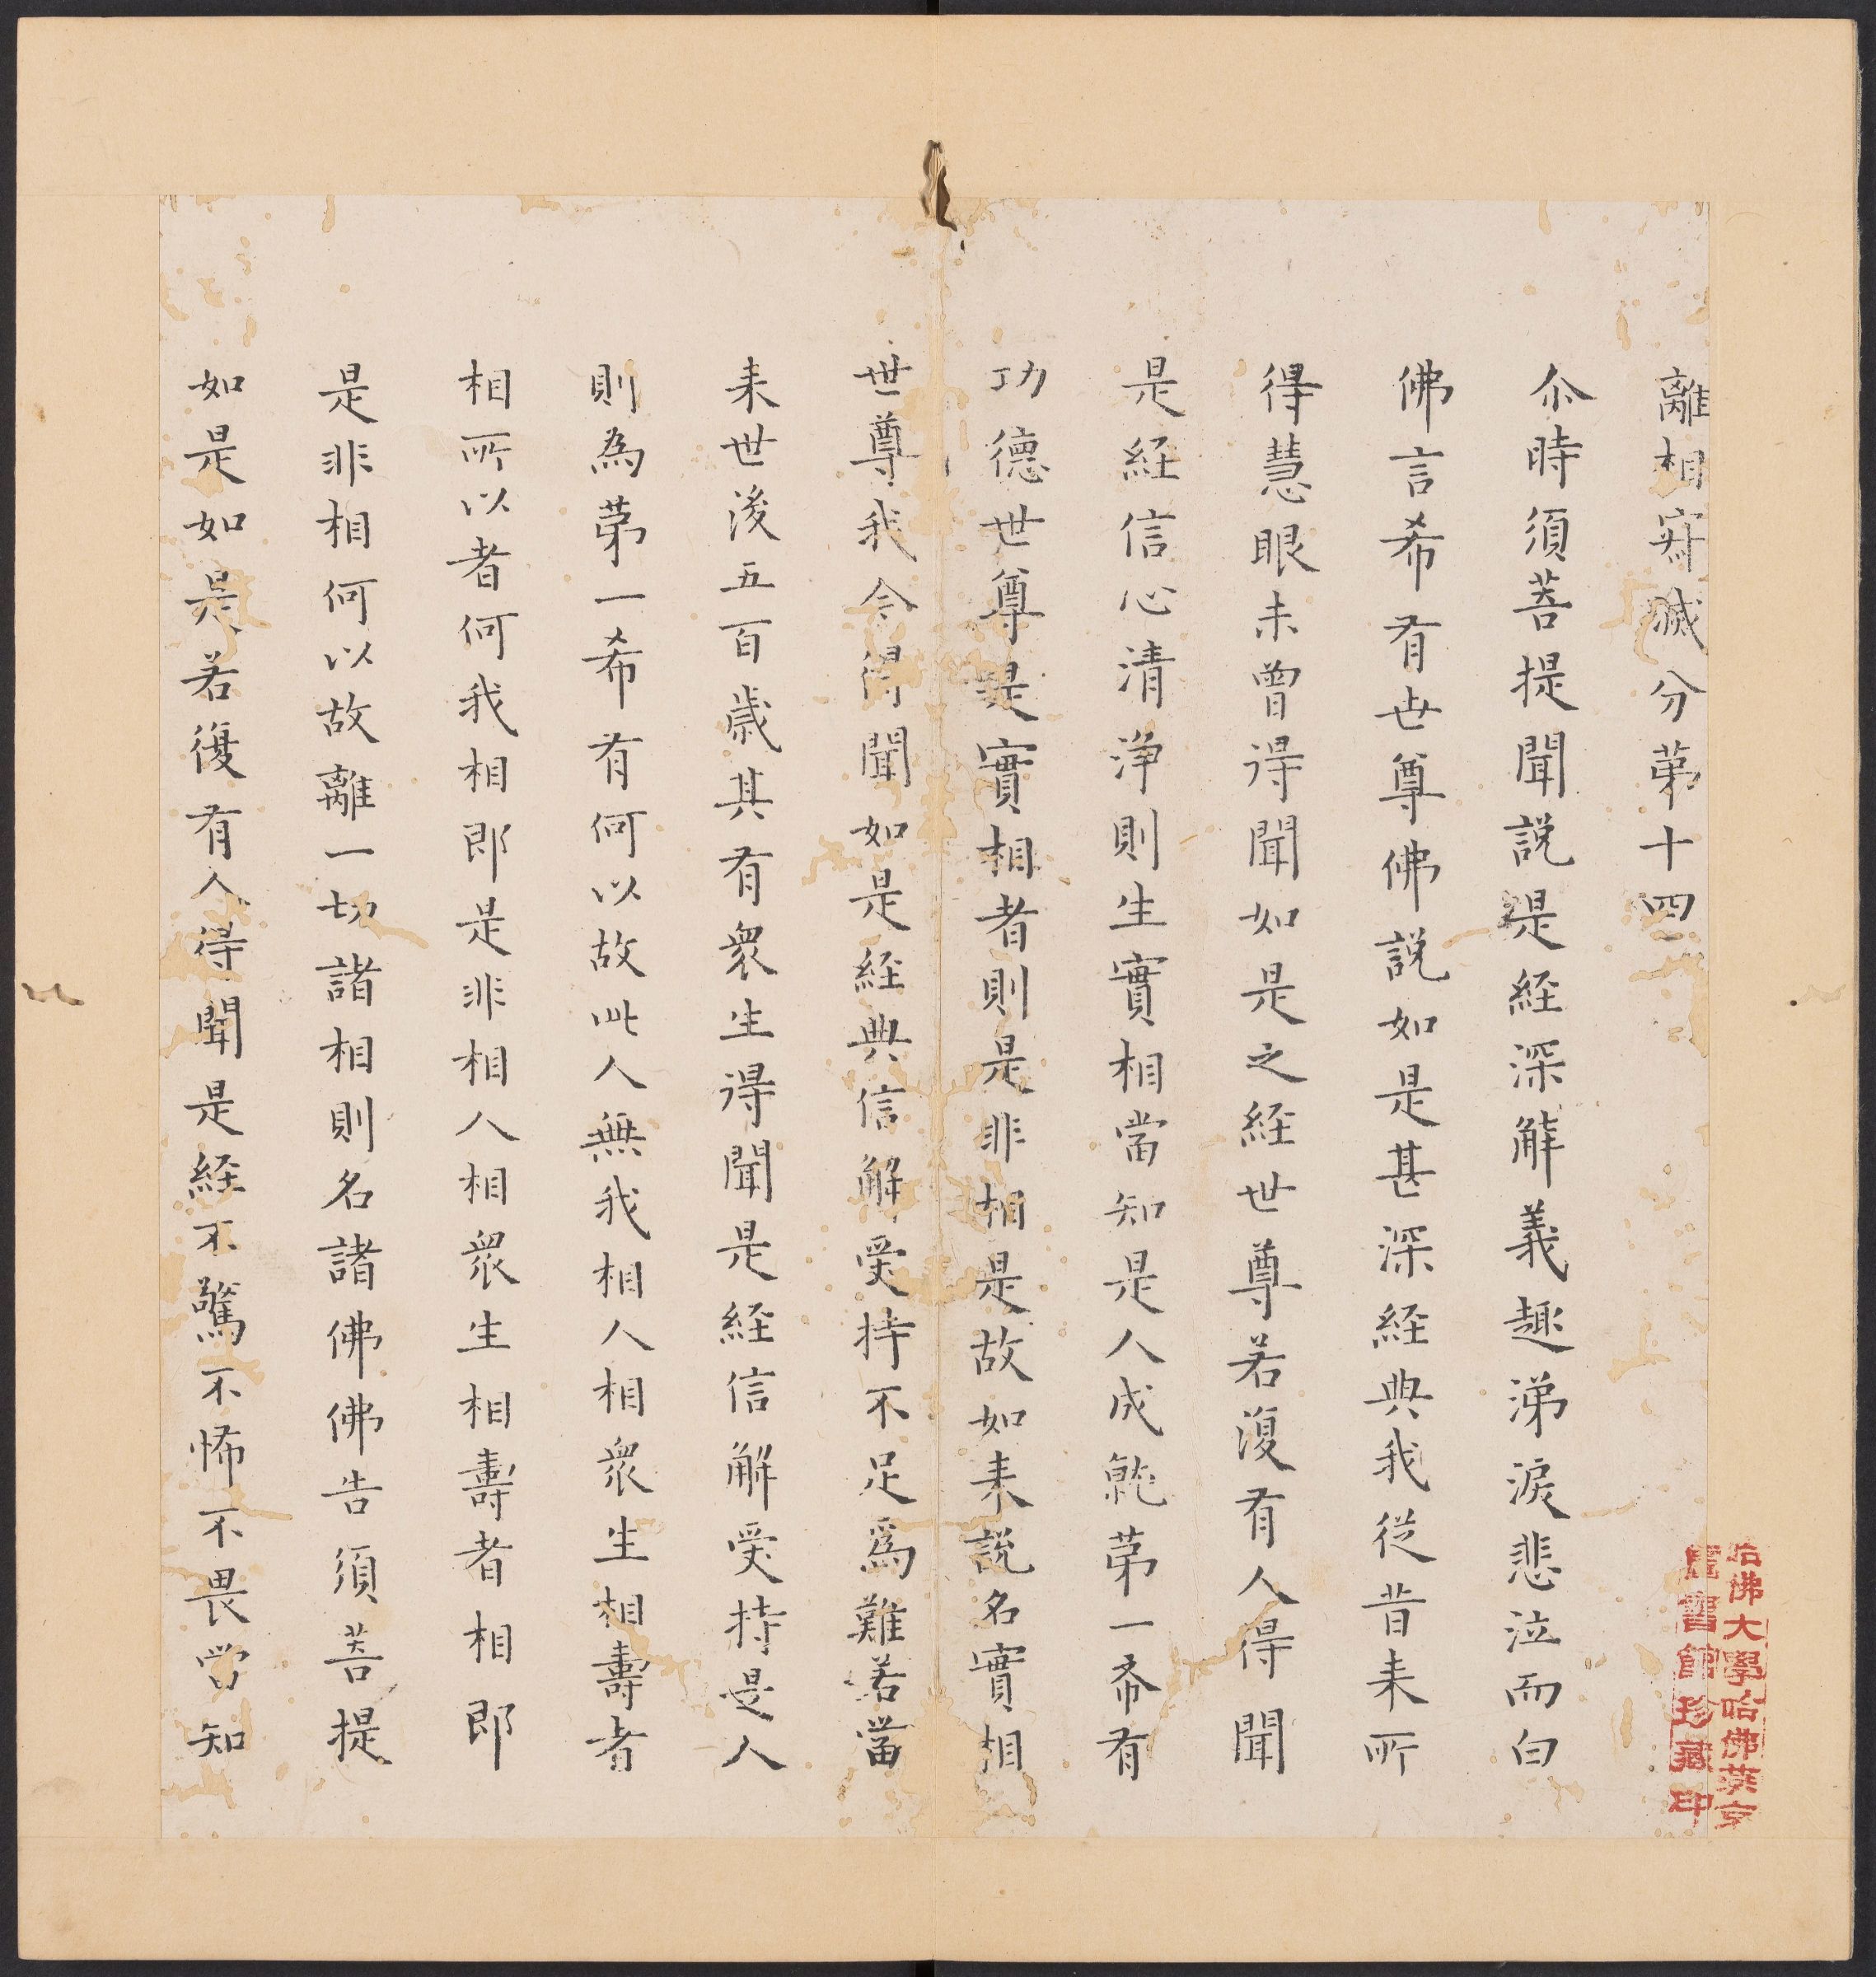 離相寂滅分苐十四
尒時須菩提聞說是経深解義趣涕淚悲泣而白
佛言希有世尊佛說如是甚深経典我従昔来所
得慧眼未曾得聞如是之経世尊若復有人得聞
是経信心清淨則生實相當知是人成就苐一希有
功德世尊是實相者則是非相是故如来說名實相
世尊我今得聞如是経典信解受持不足為難若當
来世後五百歲其有衆生得聞是経信解受持是人
則為苐一希有何以故此人無我相人相衆生相壽者
相所以者何我相即是非相人相衆生相壽者相即
是非相何以故離一切諸相則名諸佛佛告須菩提
如是如是若復有人得聞是経不驚不怖不畏當知
哈佛大學哈佛燕京
圖書館珍藏印